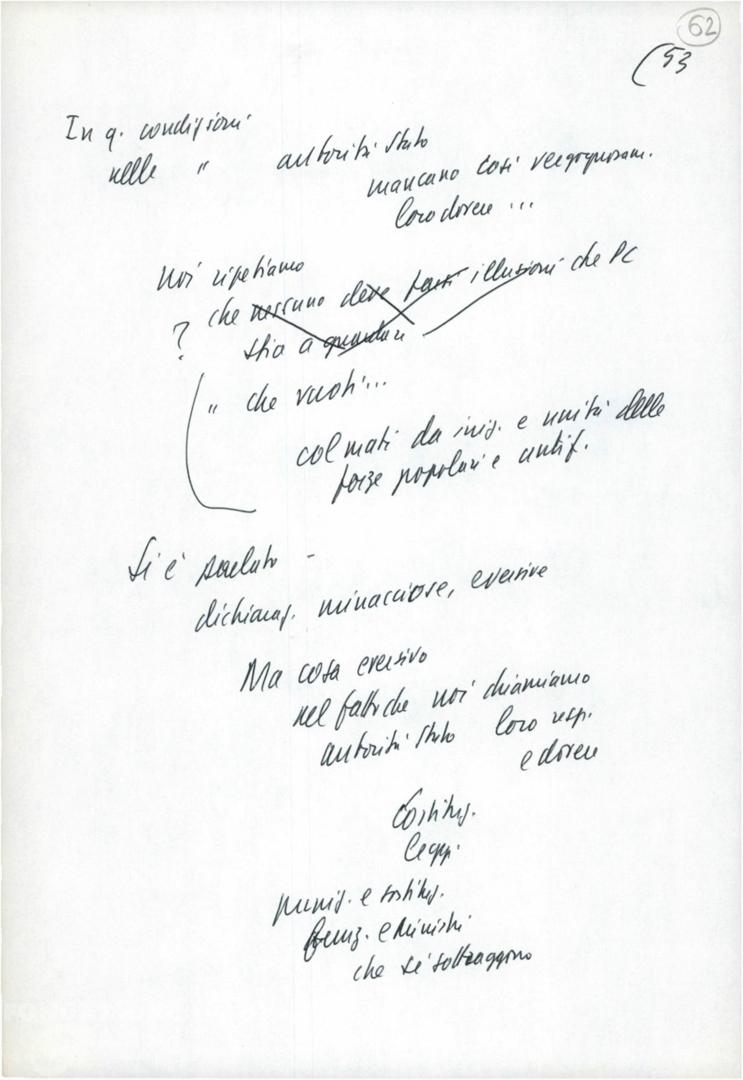 62
(53
In q. condizioni
nelle " autorità Stato
mancano così vergognosam.
loro dovere ...
Noi ripetiamo
che nessuno deve farsi illusioni che PC
? stia a guardare
" che vuoti...
colmati da iniz. e unità delle
forze popolari e antif.
Si è parlato -
dichiaraz. minacciose, eversive
Ma cosa eversivo
nel fatto che noi chiamiamo
autorità Stato loro resp.
e dovere
Costituz.
leggi
puniz. e sostituz.
funz. e Ministri
che si sottraggono